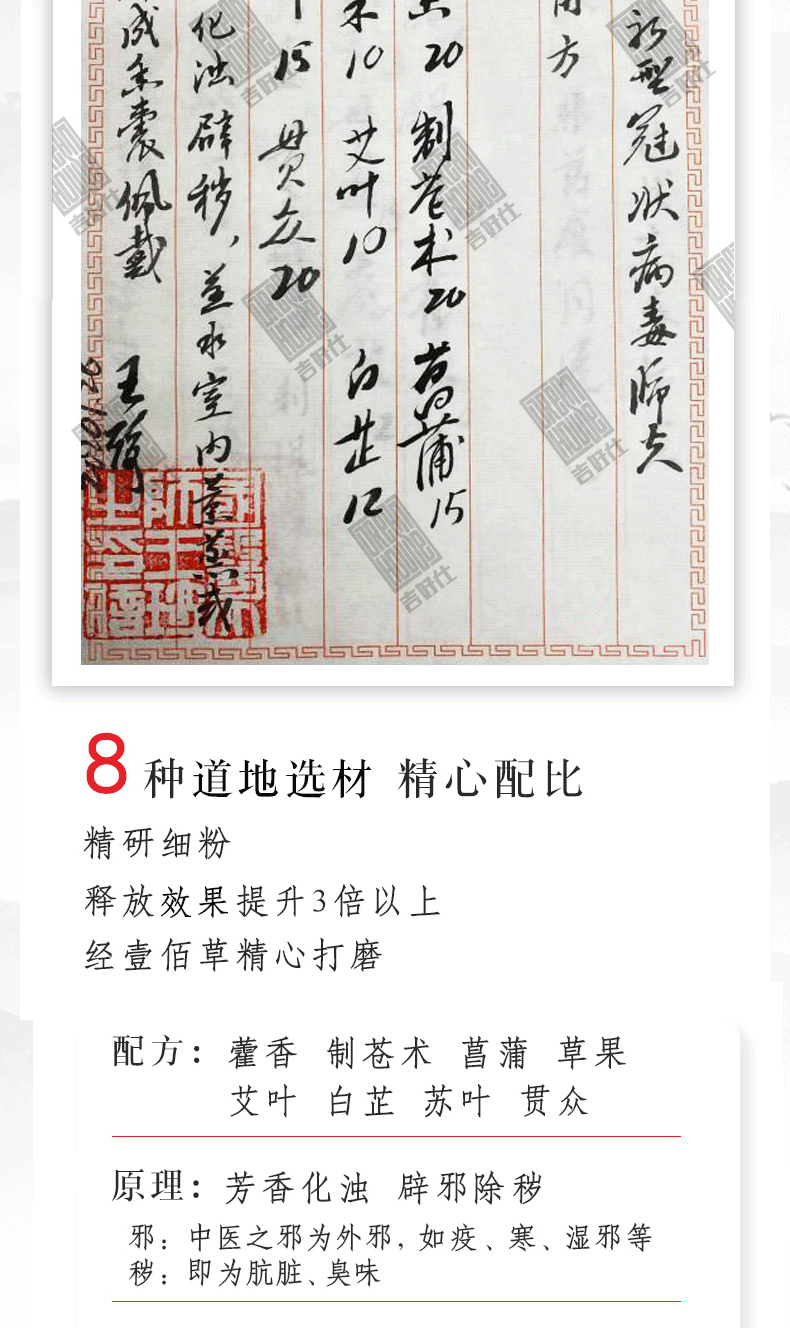 新型冠状病毒肺炎
用方
20 制苍术20 菖蒲15
10 艾叶10 白芷12
15 贯众20
化浊辟秽，并水室内熏蒸或
成香囊佩戴
吉好仕
8种道地选材 精心配比
精研细粉
释放效果提升3倍以上
经壹佰草精心打磨
配方： 藿香 制苍术 菖蒲 草果
艾叶 白芷 苏叶 贯众
原理：芳香化浊 辟邪除秽
邪：中医之邪为外邪，如疫、寒、湿邪等
秽：即为肮脏、臭味